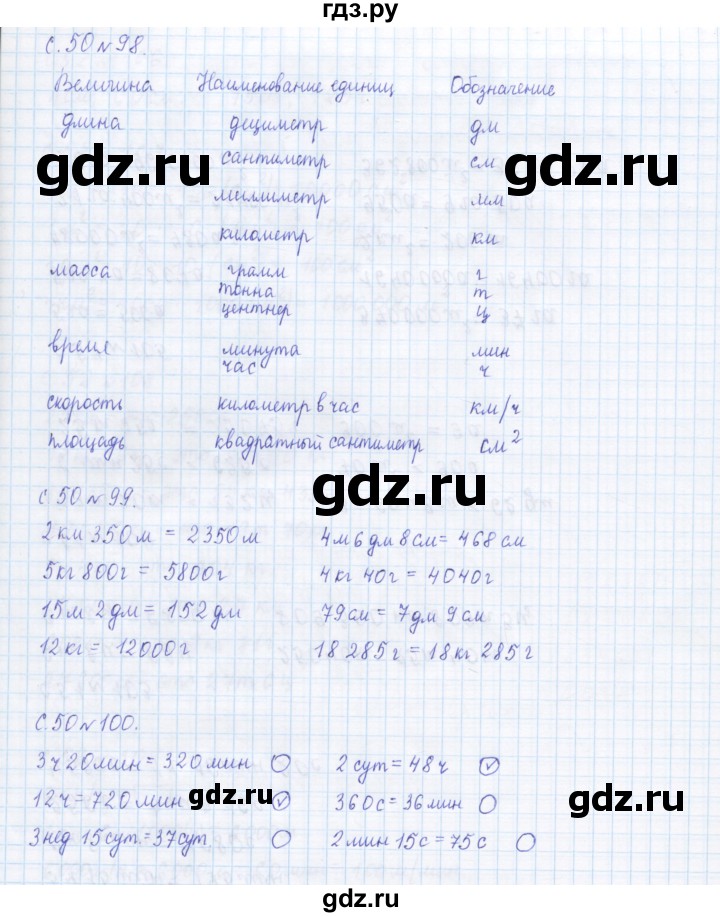 гдз.ру
с. 50 № 98.
Величина Наименование единиц Обозначение
длина дециметр дм
gdz.ru сантиметр см gdz.ru
миллиметр мм
километр км
масса грамм г
тонна т
центнер ц
время минута мин
час ч
скорость километр в час км/ч
площадь квадратный сантиметр см²
gdz.ru
с 50 № 99.
2 км 350 м = 2350 м 4 м 6 дм 8 см = 468 см
5 кг 800 г = 5800 г 4 кг 40 г = 4040 г
15 м 2 дм = 152 дм 79 см = 7 дм 9 см
12 кг = 12000 г 18 285 г = 18 кг 285 г
с. 50 № 100.
3 ч 20 мин = 320 мин 2 сут = 48 ч
12 ч = 720 мин gdz.ru 360 с = 36 мин gdz.ru
3 нед 15 сут. = 37 сут 2 мин 15 с = 75 с
gdz.ru